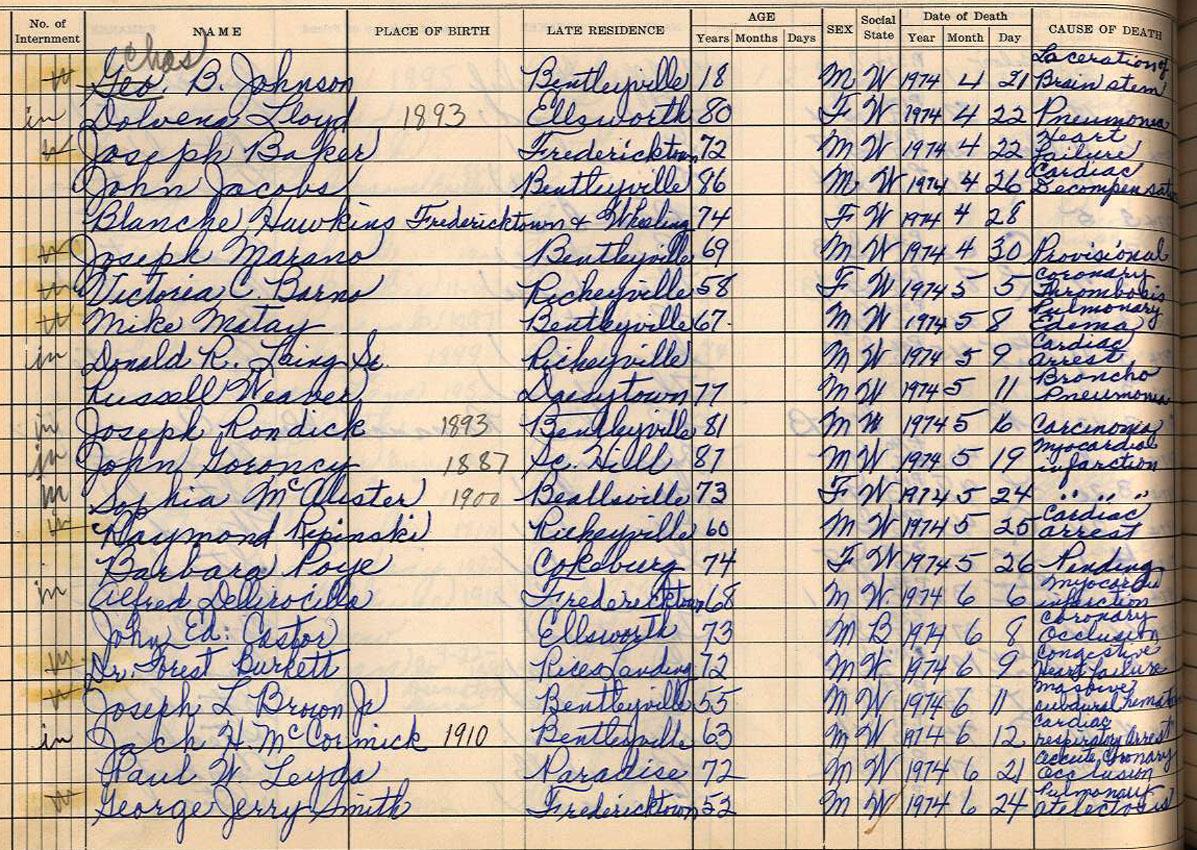 No. of Internment NAME PLACE OF BIRTH LATE RESIDENCE AGE Years Months Days SEX Social State Date of Death Year Month Day CAUSE OF DEATH
Chas
Geo. B. Johnson Bentleyville 18 M W 1974 4 21 Laceration of Brain stem
in Dolvena Lloyd 1893 Ellsworth 80 F W 1974 4 22 Pneumonia
Joseph Baker Fredericktown 72 M W 1974 4 22 Heart Failure
John Jacobs Bentleyville 86 M W 1974 4 26 Cardiac Decompensation
Blanche Hawkins Fredericktown & Wheeling 74 F W 1974 4 28
Joseph Marano Bentleyville 69 M W 1974 4 30 Provisional
Victoria C. Barno Richeyville 58 F W 1974 5 5 Coronary Thrombosis
Mike Matay Bentleyville 67 M W 1974 5 8 Pulmonary Edema
in Donald R. Laing Sr. Richeyville M W 1974 5 9 Cardiac arrest
Russell Weaver Daisytown 77 M W 1974 5 11 Broncho Pneumonia
in Joseph Rondick 1893 Bentleyville 81 M W 1974 5 16 Carcinoma
in John Goroncy 1887 Sc. Hill 87 M W 1974 5 19 Myocardial infarction
in Sophia McAlister 1900 Beallsville 73 F W 1974 5 24 " " "
in Raymond Repinski Richeyville 60 M W 1974 5 25 Cardiac arrest
Barbara Poye Cokeburg 74 F W 1974 5 26 Pending
in Alfred Fredericktown 68 M W. 1974 6 6 Myocardial infarction
John Ed: Castor Ellsworth 73 M B 1974 6 8 Coronary Occlusion
in Dr. Forest Burkett Rices Landing 72 M W 1974 6 9 Congestive Heart failure
Joseph L Brown Jr Bentleyville 55 M W 1974 6 11 Massive subdural hematoma
in Jack H. McCormick 1910 Bentleyville 63 M W 1974 6 12 Cardiac respiratory arrest
Paul W. Leyda Paradise 72 M W 1974 6 21 Accute Coronary Occlusion
George Jerry Smith Fredericktown 52 M W 1974 6 24 Pulmonary atelectosis